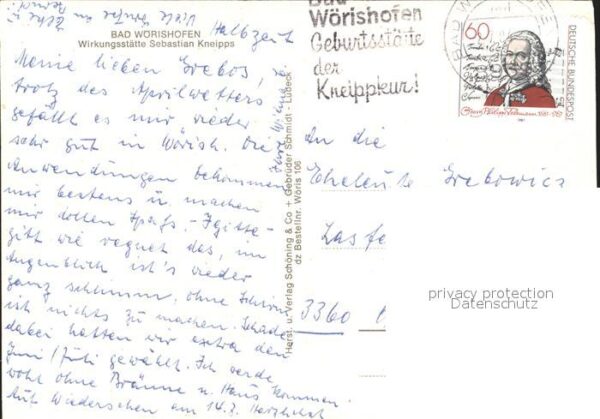 Halbzeit
BAD WÖRISHOFEN
Wirkungsstätte Sebastian Kneipps
Meine lieben Grebos,
trotz des Aprilwetters
gefällt es mir wieder
sehr gut in Wörish. Die
Anwendungen bekommen
mir bestens u. machen
mir tollen Spaß. - Igitte-
gitt wie regnet das, im
Augenblick ist's wieder
ganz schlimm. Ohne Schirm
ist nichts zu machen. Schade
dabei hatten wir extra den
Juni/Juli gewählt. Ich werde
wohl ohne Bräune n. Haus kommen.
Auf Wiedersehen am 14.7. Herzlichst
Viele Grüße an
Herst. u. Verlag Schöning & Co + Gebrüder Schmidt · Lübeck
dz Bestellnr. Wöris 106
Bad
Wörishofen
Geburtsstätte
der
Kneippkur!
BAD W
60
DEUTSCHE BUNDESPOST
Georg Philipp Telemann 1681-1767
An die
Eheleute Grebowicz
3360
privacy protection
Datenschutz